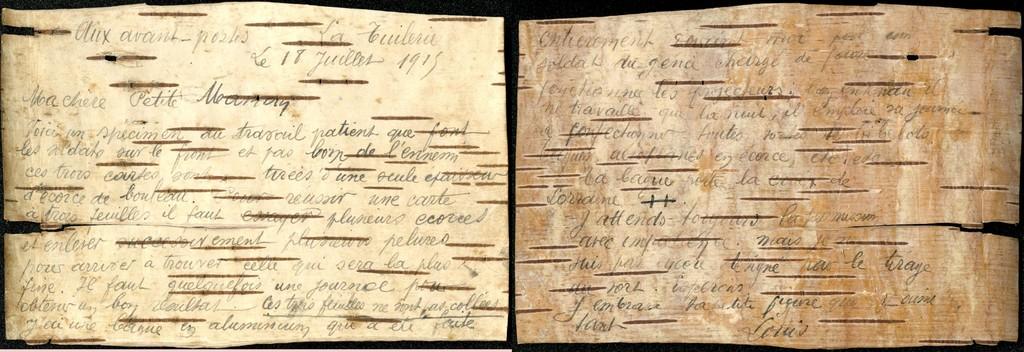 Aux avant-postes La Tuilerie
Le 18 Juillet 1915
Ma chere Petite Maman
Voici un spécimen du travail patient que font
les soldats sur le front et pas loin de l'ennemi
ces trois cartes sont tirées d'une seule épaisseur
d'écorce de bouleau. Pour réussir une carte
à trois feuilles il faut essayer plusieurs ecorces
et enlever successivement plusieurs pelures
pour arriver à trouver celle qui sera la plus
fine. Il faut quelquefois une journée pour
obtenir un bon résultat Ces trois feuilles ne sont pas collées
J'ai une bague en aluminium, que a été faite
entièrement devant moi par un
soldat du génie chargé de faire
fonctionner les projecteurs.
ne travaille que la nuit, il emploie sa journée
à confectionner toutes de bibelots
en écorce,
La bague porte la croix de
Lorraine ‡
J'attends toujours la permission
avec impatience. mais je ne
suis pas encore désigné par le tirage
au sort. espérons
J'embrasse ta petite figure que j'aime
tant Louis